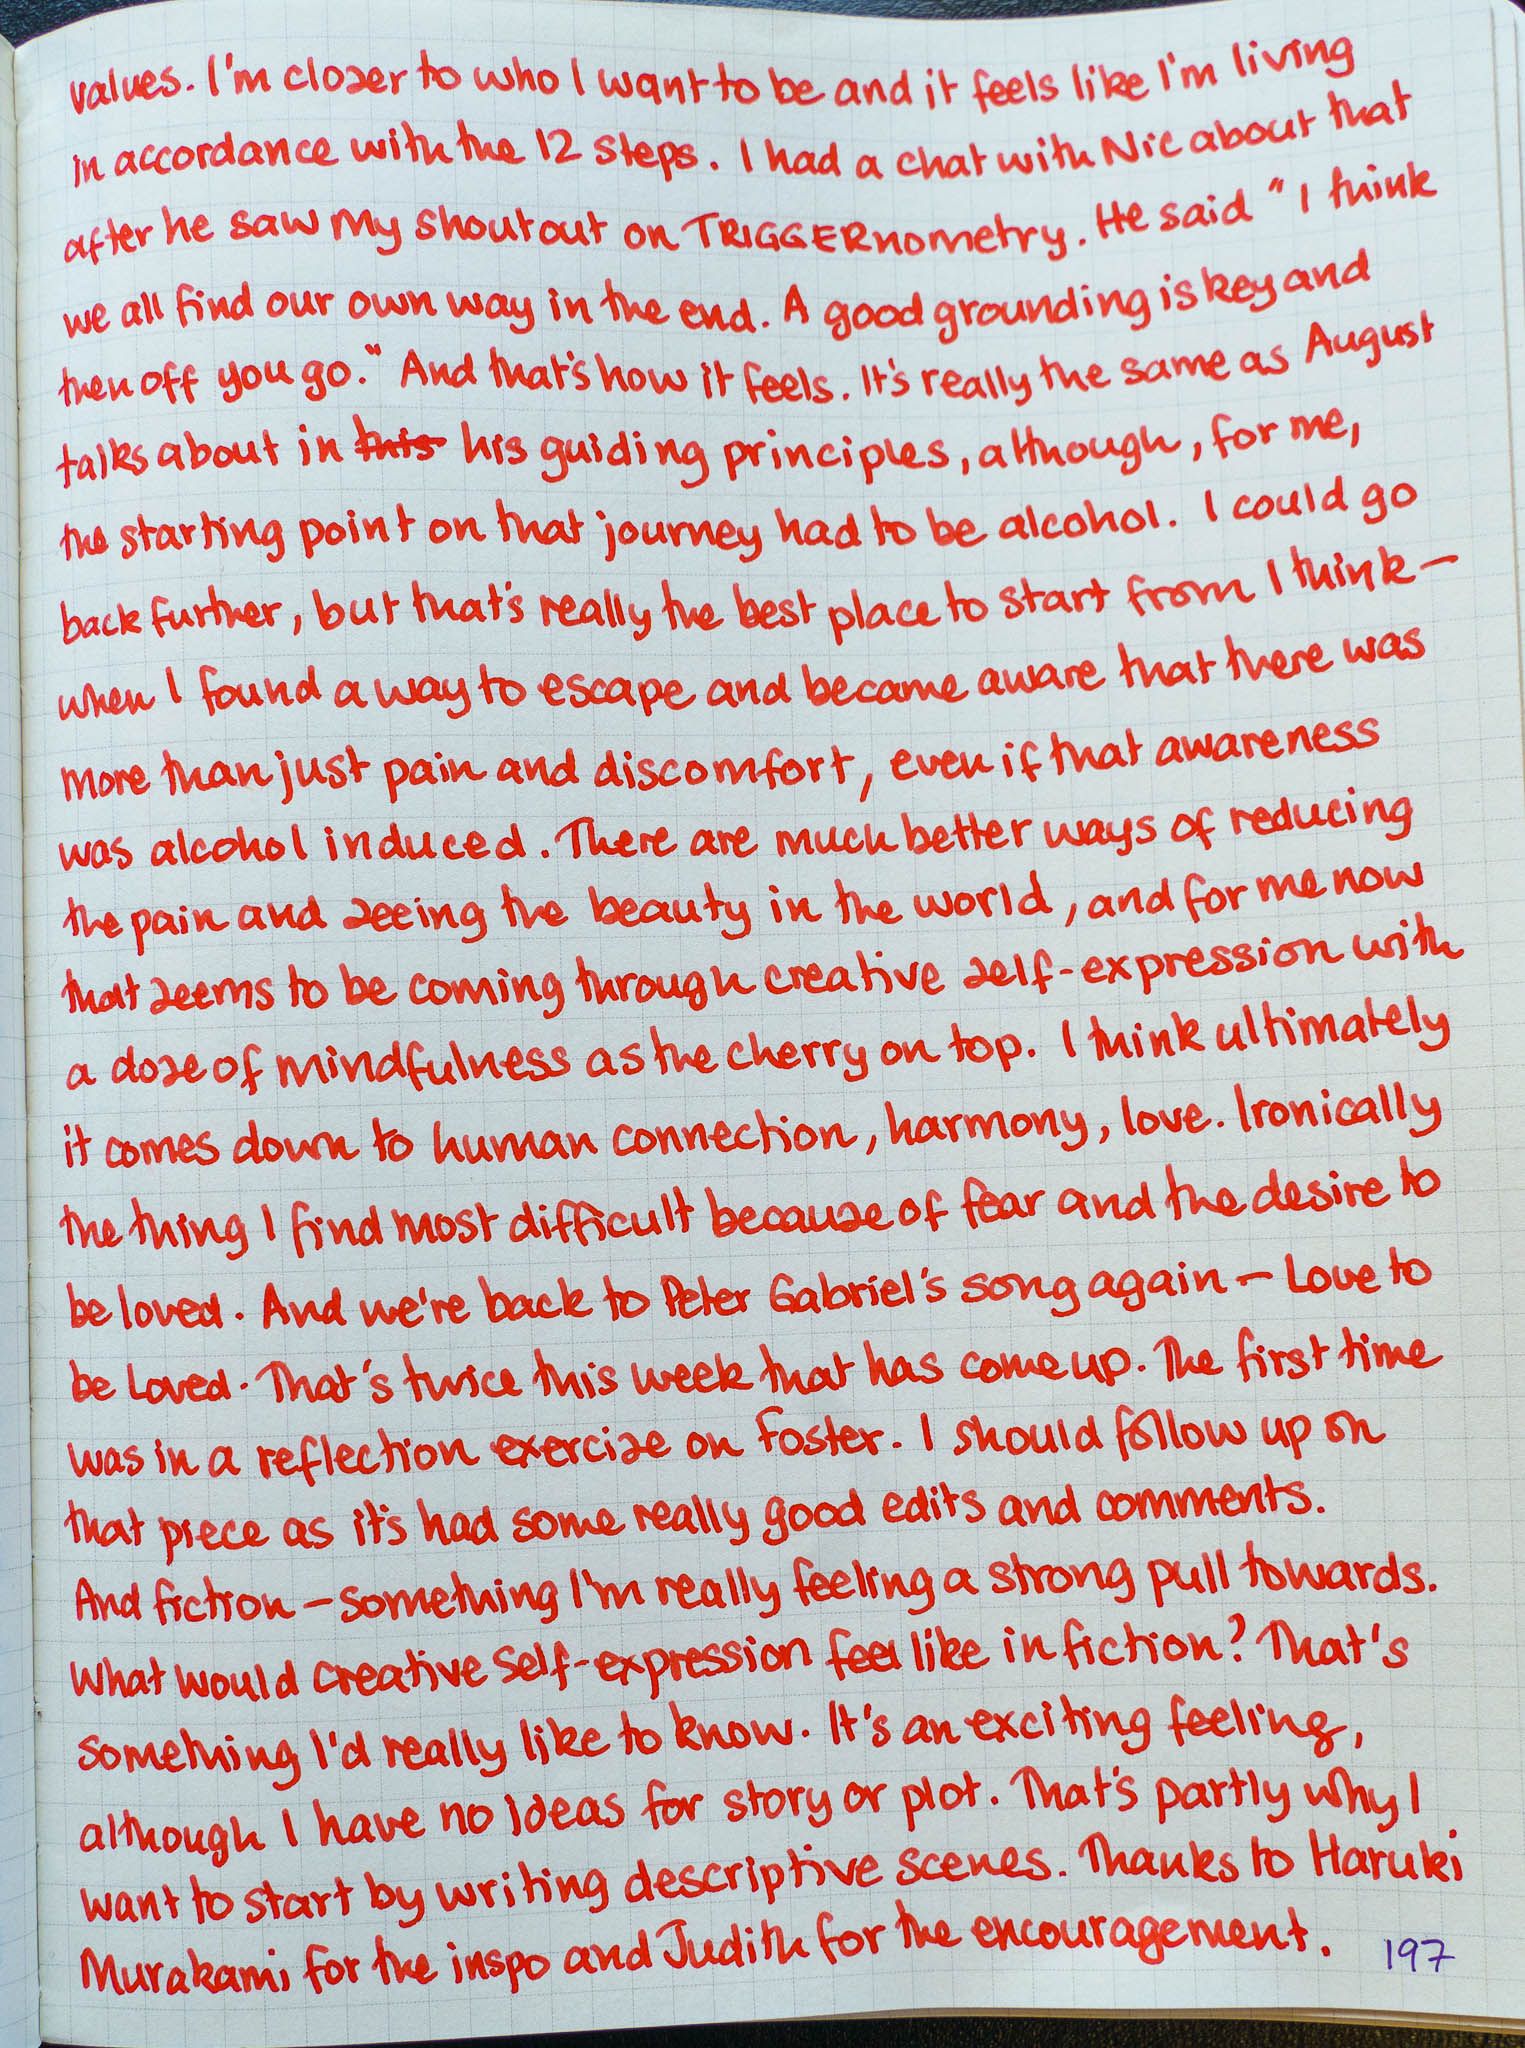 values. I'm closer to who I want to be and it feels like I'm living
in accordance with the 12 steps. I had a chat with Nic about that
after he saw my shoutout on TRIGGERnometry. He said "I think
we all find our own way in the end. A good grounding is key and
then off you go." And that's how it feels. It's really the same as August
talks about in this his guiding principles, although, for me,
the starting point on that journey had to be alcohol. I could go
back further, but that's really the best place to start from I think —
when I found a way to escape and became aware that there was
more than just pain and discomfort, even if that awareness
was alcohol induced. There are much better ways of reducing
the pain and seeing the beauty in the world, and for me now
that seems to be coming through creative self-expression with
a dose of mindfulness as the cherry on top. I think ultimately
it comes down to human connection, harmony, love. Ironically
the thing I find most difficult because of fear and the desire to
be loved. And we're back to Peter Gabriel's song again – Love to
be Loved. That's twice this week that has come up. The first time
was in a reflection exercise on Foster. I should follow up on
that piece as it's had some really good edits and comments.
And fiction – something I'm really feeling a strong pull towards.
What would creative self-expression feel like in fiction? That's
something I'd really like to know. It's an exciting feeling,
although I have no ideas for story or plot. That's partly why I
want to start by writing descriptive scenes. Thanks to Haruki
Murakami for the inspo and Judith for the encouragement.
197